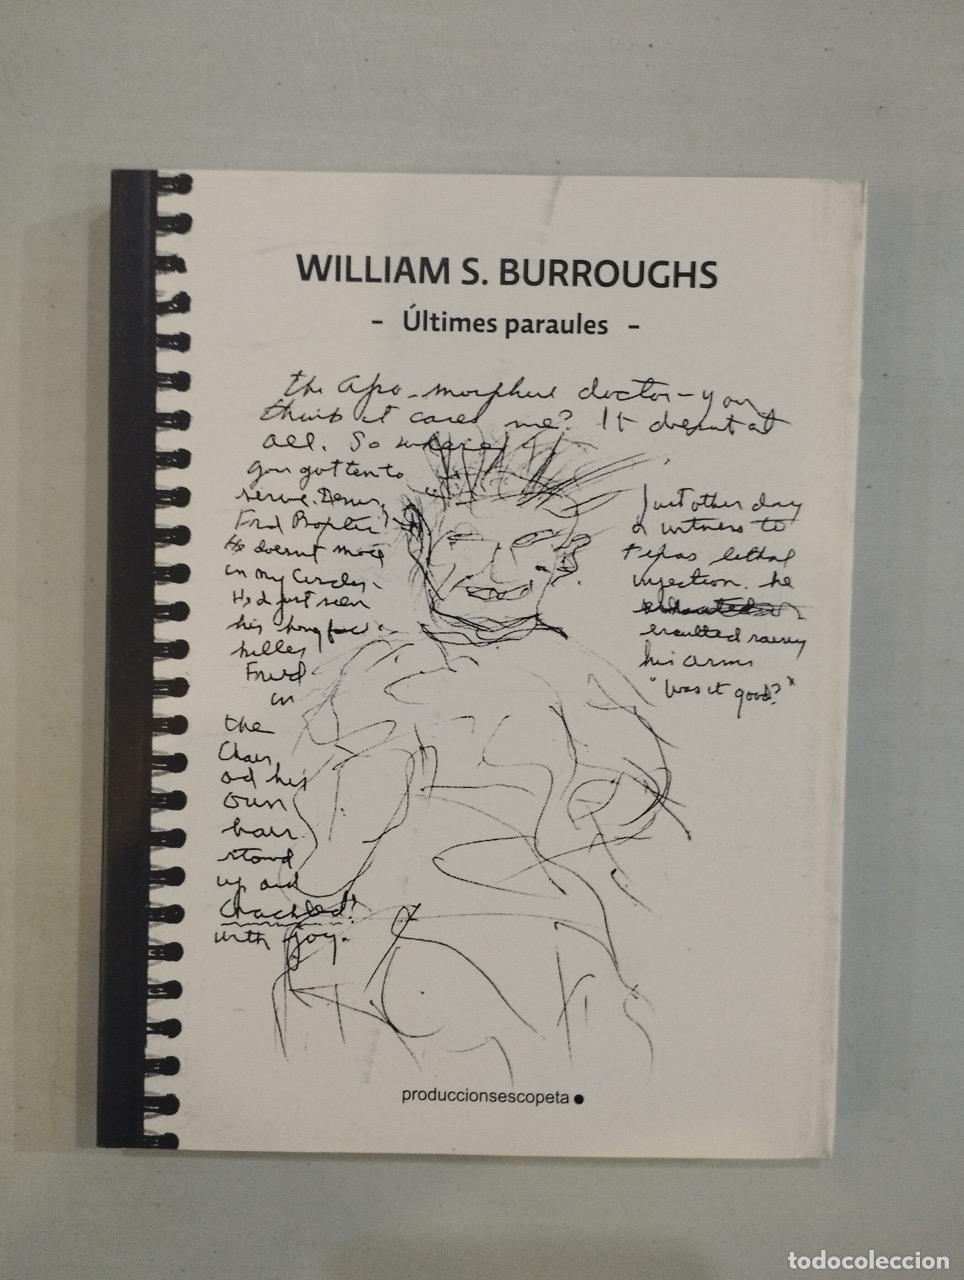 WILLIAM S. BURROUGHS
- Últimes paraules -
the apo-morphine doctor - you
think it cares me? It doesn't at
all. So where
you gotten to
serve.
Fred
He doesn't move
in my Circles.
He'd just seen
his
killed
in
the
Chair
and his
own
hair
stood
up and
Crackled!
with joy.
Just other day
a witness to
texas lethal
injection. he
exaulted
his arms
"Was it good?"
produccionsescopeta
todocoleccion